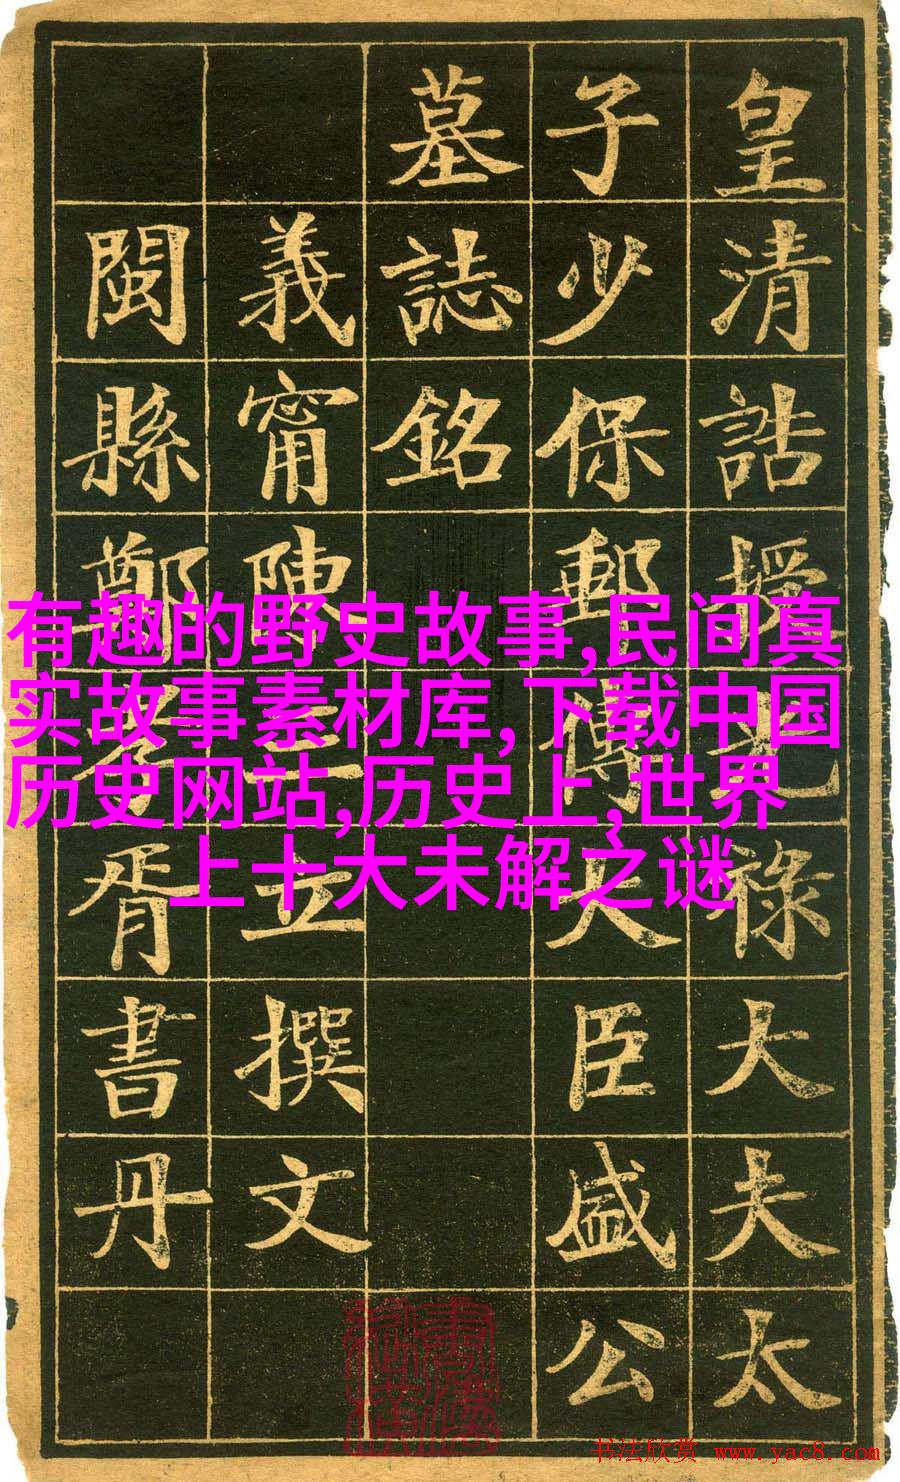 皇清誥授光祿大夫太
子少保郵傳大臣盛公
墓誌銘
義甯陳三立撰文
閩縣鄭孝胥書丹
有趣的野史故事,民间真
实故事素材库,下载中国
历史网站,历史上,世界
上十大未解之谜
书法欣赏 www.yac8.com